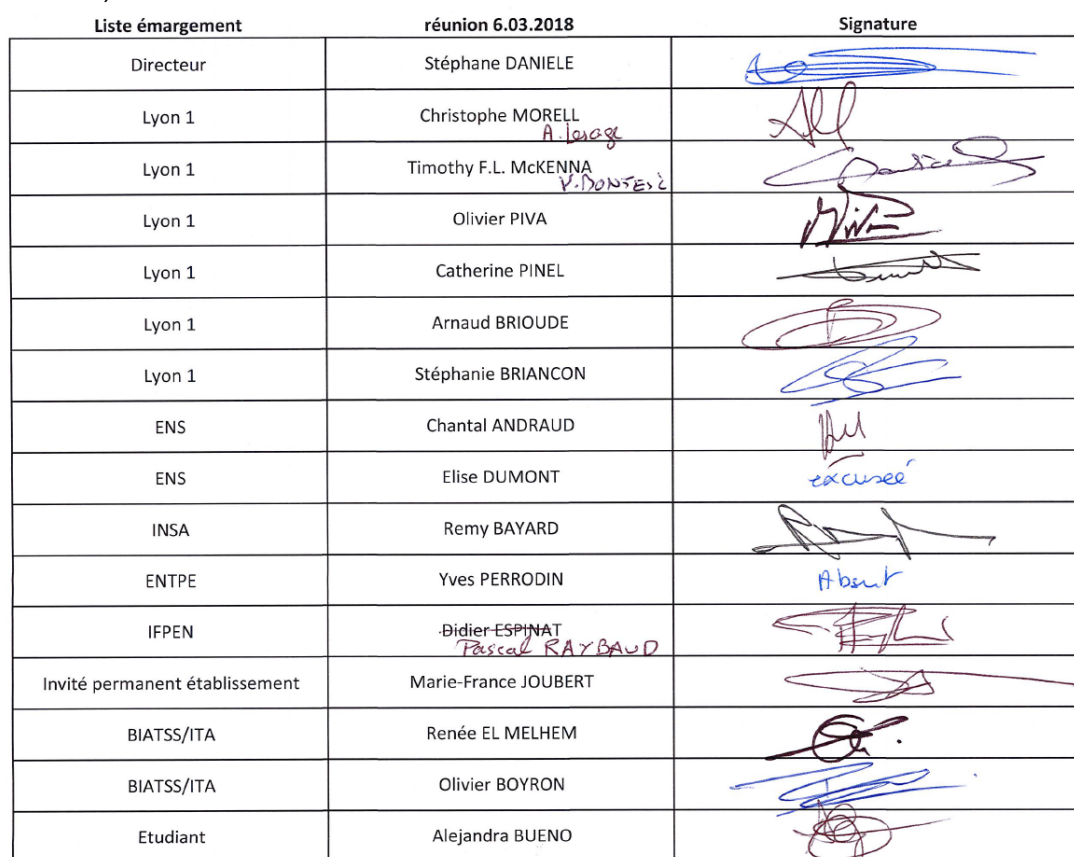 Liste émargement réunion 6.03.2018 Signature
Directeur Stéphane DANIELE
Lyon 1 Christophe MORELL
A. Lesage
Lyon 1 Timothy F.L. McKENNA
Lyon 1 Olivier PIVA
Lyon 1 Catherine PINEL
Lyon 1 Arnaud BRIOUDE
Lyon 1 Stéphanie BRIANCON
ENS Chantal ANDRAUD
ENS Elise DUMONT excuseé
INSA Remy BAYARD
ENTPE Yves PERRODIN Absent
IFPEN Didier ESPINAT
Pascal RAYBAUD
Invité permanent établissement Marie-France JOUBERT
BIATSS/ITA Renée EL MELHEM
BIATSS/ITA Olivier BOYRON
Etudiant Alejandra BUENO